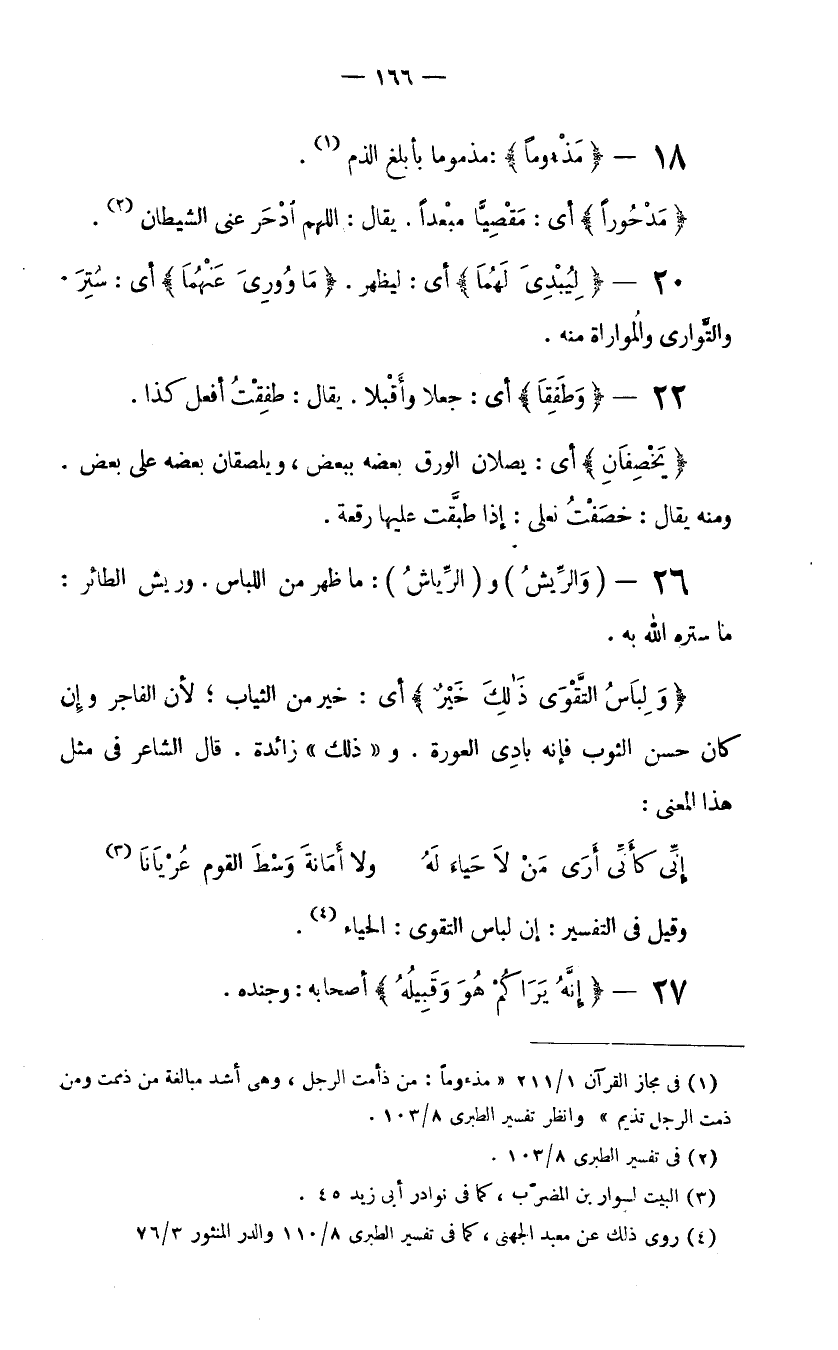 — ١٦٦ —
١٨ — ﴿ مَذْءوماً ﴾ :مذموما بأبلغ الذم (١) .
﴿ مَدْحُوراً ﴾ أى : مَقْصِيًّا مبْعداً . يقال : اللهم ٱدْحَر عنى الشيطان (٢) .
٢٠ — ﴿ لِيُبْدِىَ لَهُمَا ﴾ أى : ليظهر . ﴿ مَا وُورِىَ عَنْهُمَا ﴾ أى : سُتِرَ .
والتَّوارى والْمواراة منه .
٢٢ — ﴿ وَطَفِقَا ﴾ أى : جعلا وأَقْبلا . يقال : طفِقْتُ أفعل كذا .
﴿ يَخْصِفَانِ ﴾ أى : يصلان الورق بعضه ببعض ، ويلصقان بعضه على بعض .
ومنه يقال : خصَفْتُ نعلى : إذا طبَّقت عليها رقعة .
٢٦ — ( وَالرِّيشُ ) و ( الرِّياشُ ) : ما ظهر من اللباس . وريش الطائر :
ما ستره الله به .
﴿ وَلِبَاسُ التَّقْوَى ذَٰلِكَ خَيْرٌ ﴾ أى : خير من الثياب ؛ لأن الفاجر وإن
كان حسن الثوب فإنه بادِى العورة . و « ذلك » زائدة . قال الشاعر فى مثل
هذا المعنى :
إِنِّى كَأَنِّى أَرَى مَنْ لاَ حَيَاءَ لَهُ ولا أَمَانةَ وَسْطَ القوم عُرْيَانَا (٣)
وقيل فى التفسير : إن لباس التقوى : الحياء (٤) .
٢٧ — ﴿ إِنَّهُ يَرَاكُمْ هُوَ وَقَبِيلُهُ ﴾ أصحابه : وجنده .
(١) فى مجاز القرآن ٢١١/١ « مذءوماً : من ذأمت الرجل ، وهى أشد مبالغة من ذممت ومن
ذمت الرجل تذيم » وانظر تفسير الطبرى ١٠٣/٨ .
(٢) فى تفسير الطبرى ١٠٣/٨ .
(٣) البيت لسوار بن المضرّب ، كما فى نوادر أبى زيد ٤٥ .
(٤) روى ذلك عن معبد الجهنى ، كما فى تفسير الطبرى ١١٠/٨ والدر المنثور ٧٦/٣